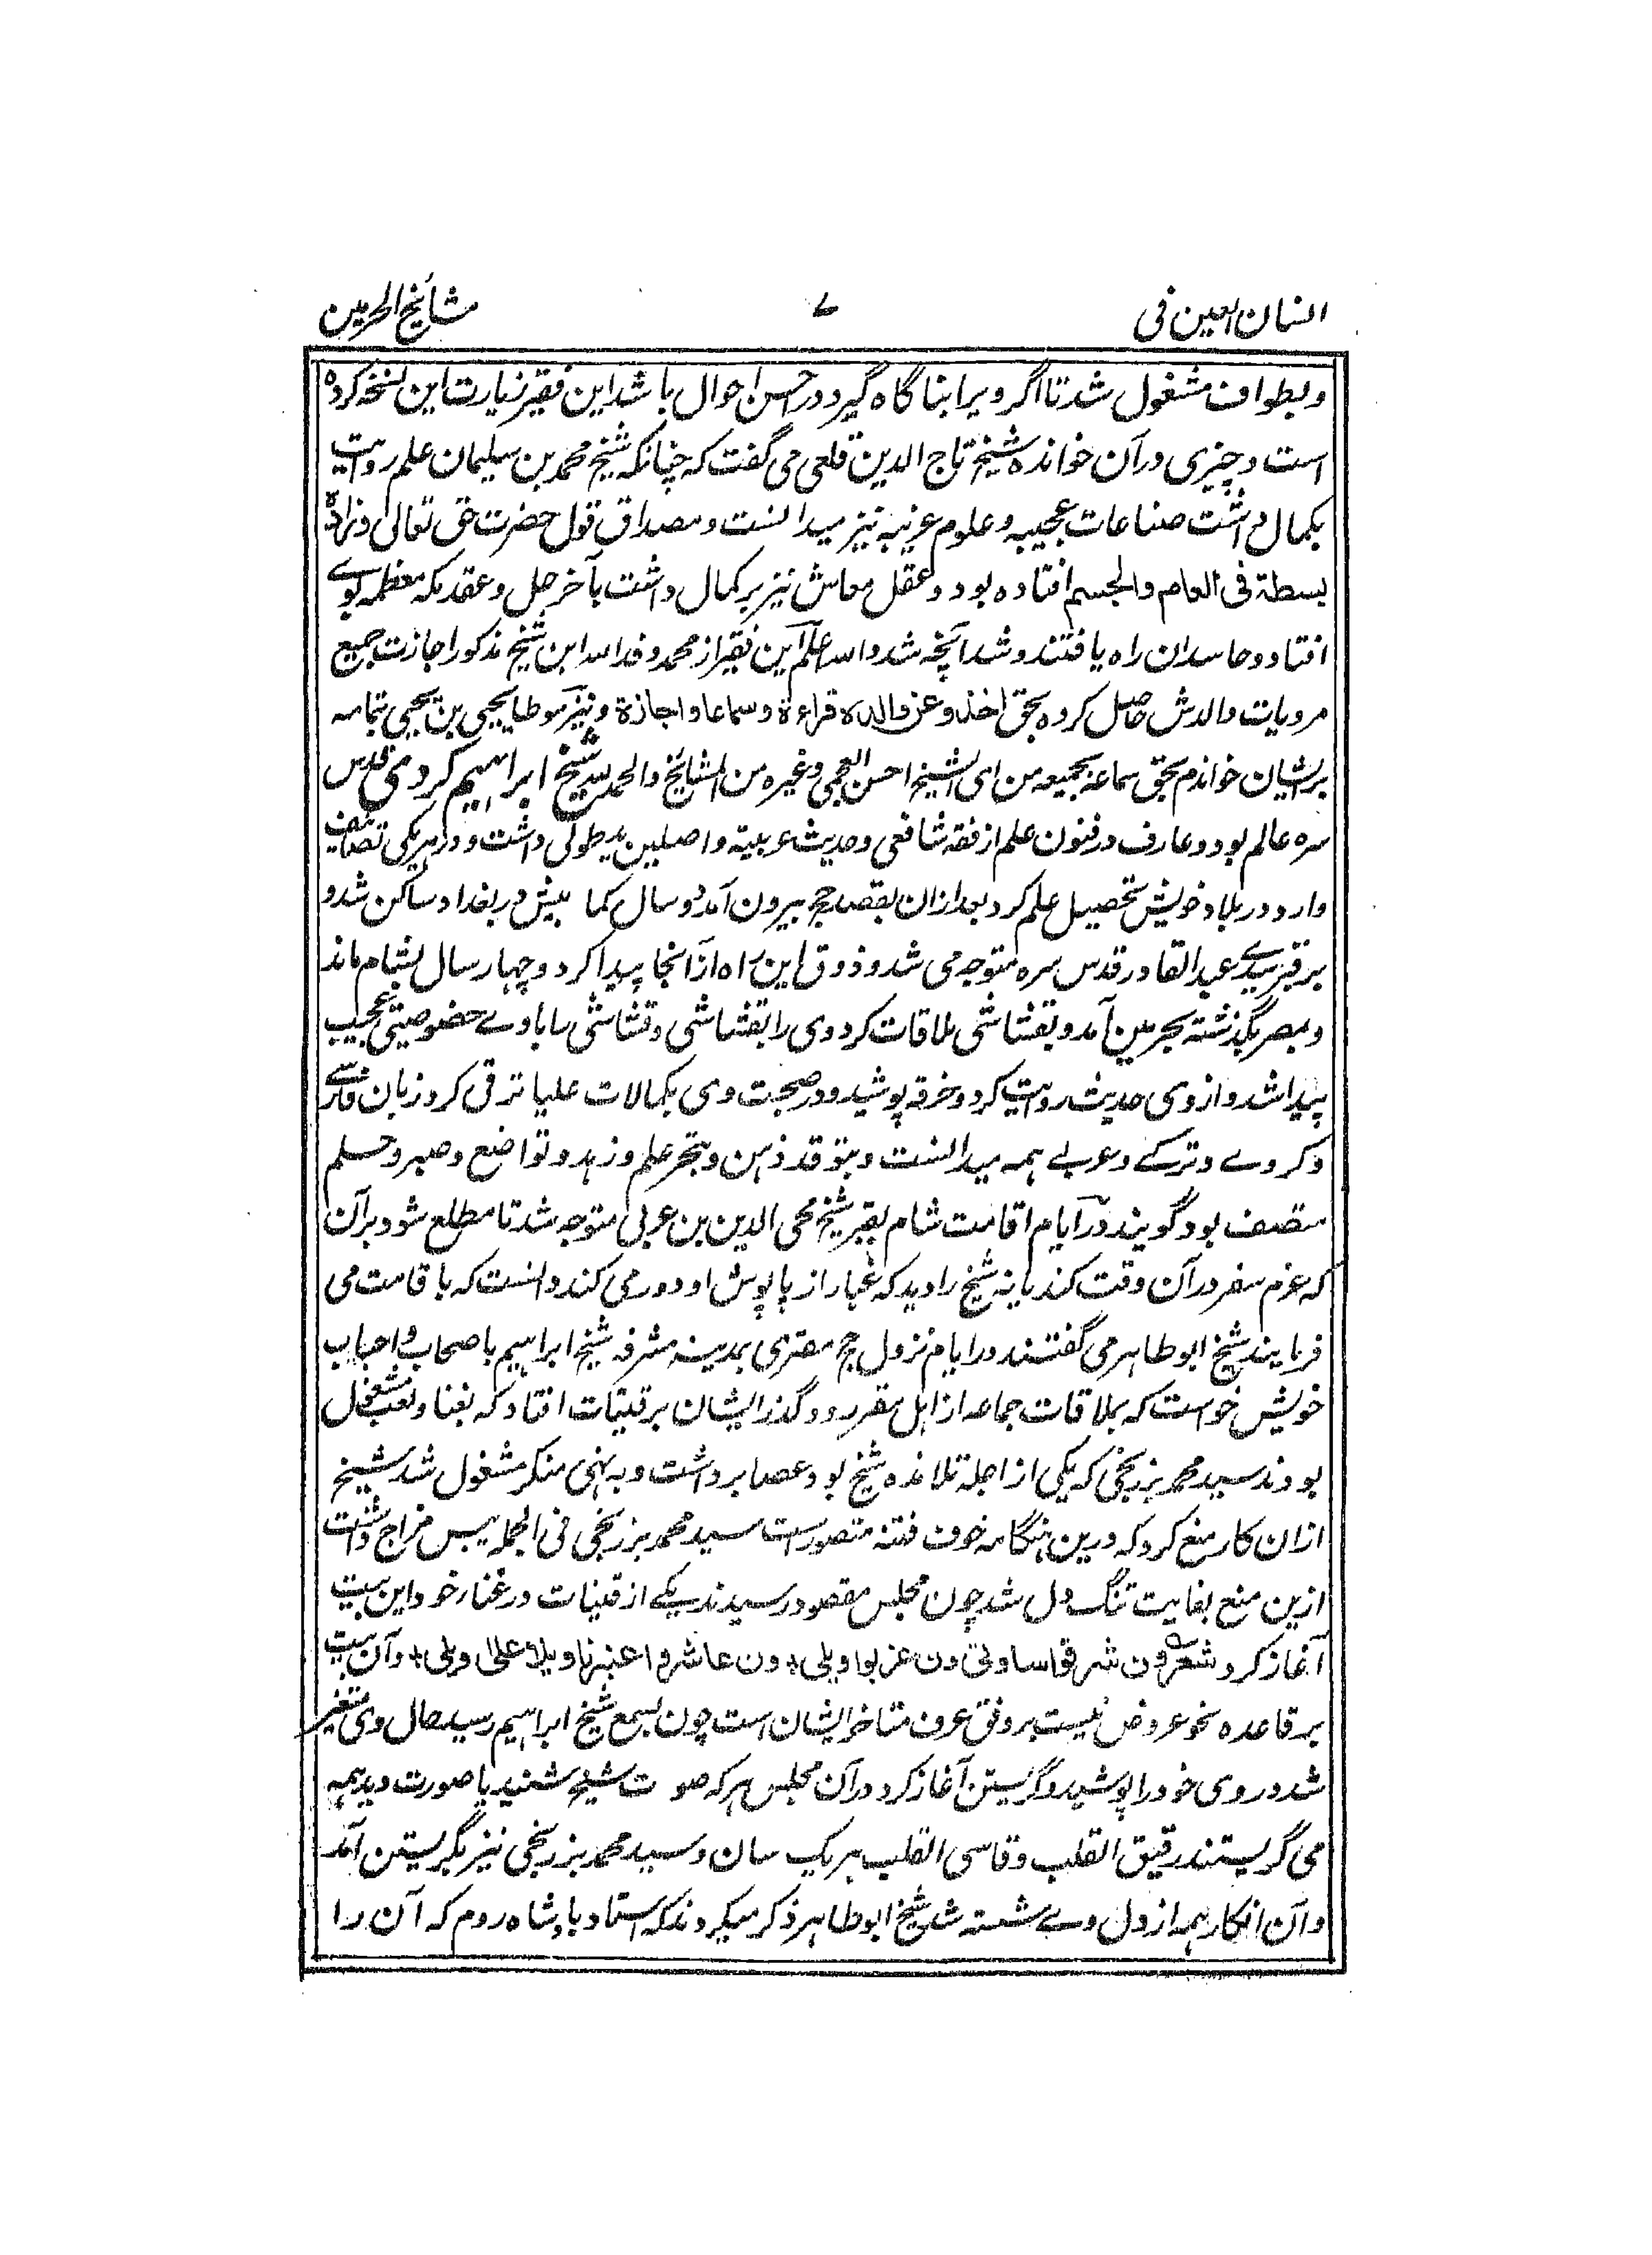 انسان العین فی ۷ مشائخ الحرمین
وبطواف مشغول شد تا اگر ویرا بناگاه گیرد در احسن احوال باشد این فقیر زیارت این نسخه کرده
است و چیزی در آن خوانده شیخ تاج الدین قلعی می گفت که چنانکه شیخ محمد بن سلیمان علم روایت
بکمال داشت صناعات عجیبه و علوم غریبه نیز میدانست و مصداق قول حضرت حق تعالی وزاده
بسطة فی العلم والجسم افتاده بود و عقل معاش نیز بر کمال داشت بآخر حل و عقد مکه معظمه بوے
افتاد و حاسدان راه یافتند و شد آنچه شد والله اعلم این فقیر از محمد وفد الله ابن شیخ مذکور اجازت جمیع
مرویات والدش حاصل کرده بحق اخذه عن والده قراءة وسماعا واجازة و نیز موطا یحیی بن یحیی بتمامه
بر ایشان خواندم بحق سماعه بجمیعه من الشیخ احسن العجمی وغیره من المشائخ والحمد لله شیخ ابراهیم کردی قدس
سره عالم بود و عارف در فنون علم از فقه شافعی و حدیث عربیة و اصلین ید طولی داشت و در هر یکی تصانیف
دارد در بلاد خویش تحصیل علم کرد بعد از ان بقصد حج بیرون آمد دو سال کما بیش در بغداد ساکن شد و
بر قبر سیدے عبد القادر قدس سره متوجه می شد و ذوق این راه از آنجا پیدا کرد و چهار سال بشام ماند
و بمصر بگذشته بحرمین آمد و بقشاشی ملاقات کرد وی را بقشاشی و قشاشی را با وے خصوصیتی عجیب
پیدا شد و از وی حدیث روایت کرد و خرقه پوشید و در صحبت وی بکمالات علیا ترقی کرد زبان فارسے
و کردے و ترکے و عربے همه میدانست و بتوقد ذهن و تبحر علم و زهد و تواضع و صبر و حلم
متصف بود گویند در ایام اقامت شام بقبر شیخ محی الدین بن عربی متوجه شد تا مطلع شود بر آن
که عزم سفر در آن وقت کند یا نه شیخ را دید که غبار از پاپوش او دور می کند دانست که باقامت می
فرمایند شیخ ابو طاهر می گفتند در ایام نزول حج مصری بمدینه مشرفه شیخ ابراهیم باصحاب و احباب
خویش خواست که بملاقات جماعه از اهل مصر رود گذر ایشان بر قینات افتاد که بغنا و لعب مشغول
بودند سید محمد برزنجی که یکی از اجله تلامذه شیخ بود عصا برداشت و به نهی منکر مشغول شد شیخ
ازان کار منع کرد که درین هنگامه خوف فتنه متصورست سید محمد برزنجی فی الجمله یبس مزاج داشت
ازین منع بغایت تنگ دل شد چون مجلس مقصود رسیدند یکے از قینات در غنار خود این بیت
آغاز کرد شعر ون شرقوا ساوتی ون غربوا ویلی ون عاشروا غیرنا ویلا علی ویلی و آن بیت
بر قاعده نحو عروض نیست بر وفق عرف متاخر ایشان است چون بسمع شیخ ابراهیم رسید حال وی متغیر
شد و روی خود را پوشید و گریستن آغاز کرد در آن مجلس هر که صوت شیخ شنید یا صورت دید همه
می گریستند رقیق القلب و قاسی القلب هر یک سان و سید محمد برزنجی نیز بگریستن آمد
و آن انکار همه از دل وے شسته شد شیخ ابو طاهر ذکر میکردند که استاد بادشاه روم که آن را